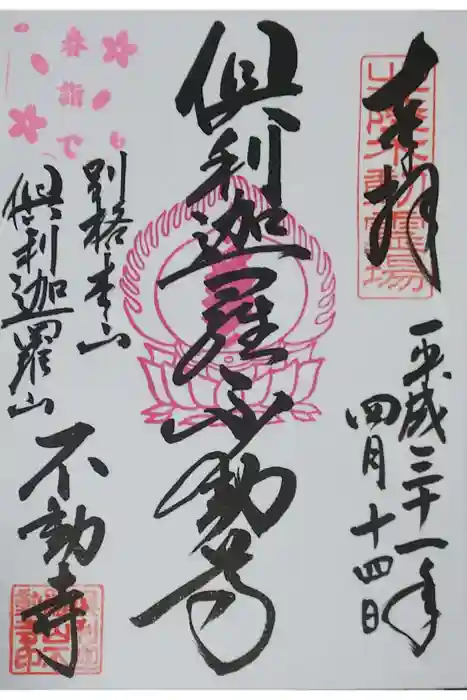 奉拝
北陸不動霊場
平成三十一年
四月十四日
俱利迦羅不動尊
別格本山
俱利迦羅山
不動寺